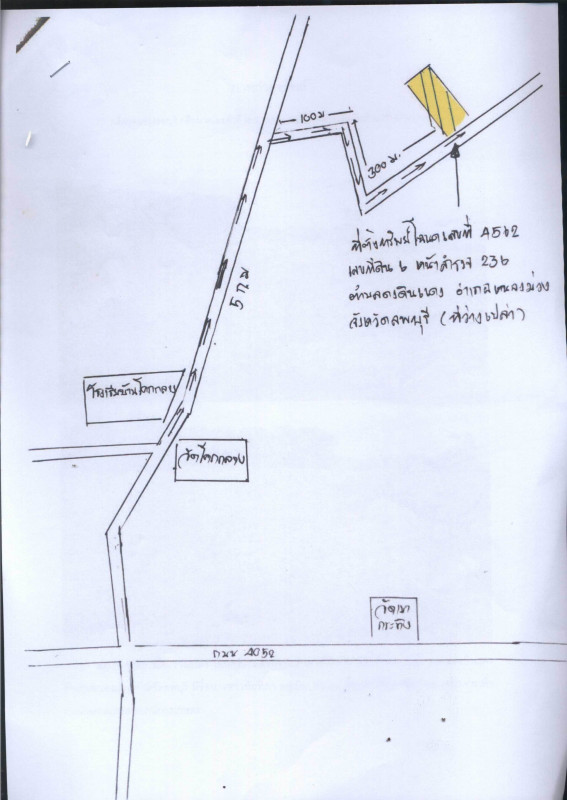 100 ม
300 ม.
ที่ตั้งทรัพย์ โฉนดเลขที่ 4562
เลขที่ดิน ๖ หน้าสำรวจ 236
ตำบลดงดินแดง อำเภอหนองม่วง
จังหวัดลพบุรี (ที่ว่างเปล่า)
5 กม
โรงเรียนบ้านโคกกลาง
วัดโคกกลาง
วัดเขา
กระทิง
ถนน 4052